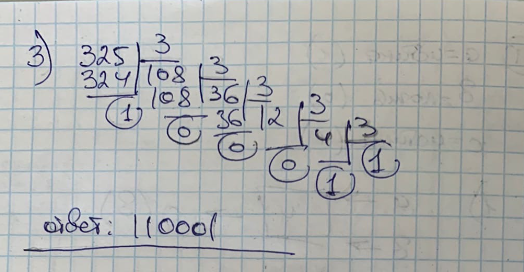 3) 325 | 3
324 | 108 | 3
1 108 | 36 | 3
0 36 | 12 | 3
0 0 4 | 3
1 1
ответ: 110001